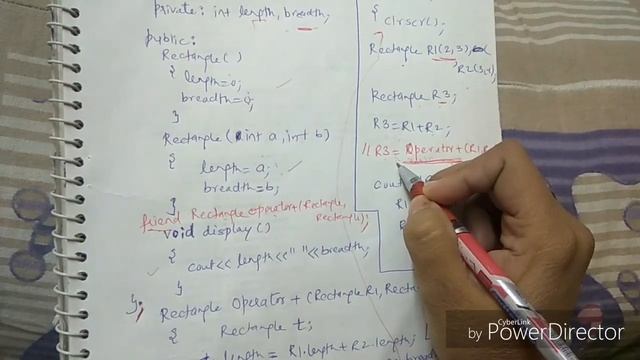 private: int length, breadth;
public:
Rectangle( )
{ length=0;
breadth=0;
}
Rectangle (int a, int b)
{ length= a;
breadth=b;
}
friend Rectangle operator+(Rectangle,
Rectangle);
void display( )
{
cout<< length<<" "<<breadth;
}
};
Rectangle Operator + (Rectangle R1, Rect
{ Rectangle t;
length = R1.length + R2.length;
{
clrscr( );
Rectangle R1(2,3),
R2(3,4);
Rectangle R3;
R3=R1+R2;
// R3= Operator+(R1,R
cout
R1
by CyberLink
PowerDirector